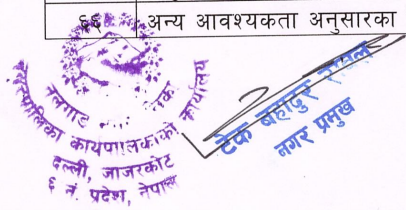 ६६ अन्य आवश्यकता अनुसारका
नलगाड
नगरपालिका कार्यपालिकाको कार्यालय
दल्ली, जाजरकोट
६ नं. प्रदेश, नेपाल
टेक बहादुर रावल
नगर प्रमुख